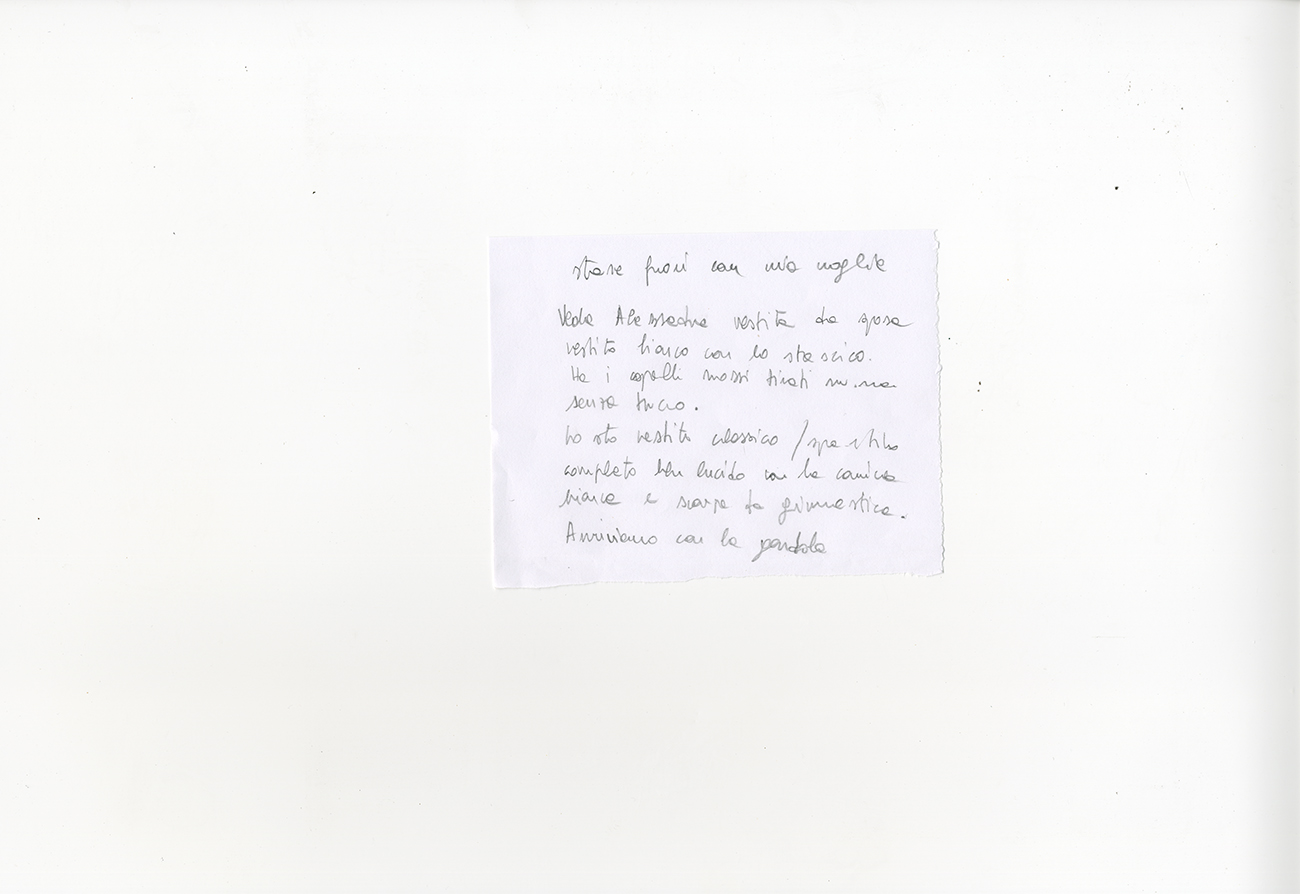 stare fuori con mia moglie
Vedo Alessadra vestita da sposa
vestito bianco con lo strascico.
Ha i capelli mossi tirati su, ma
senza trucco.
Io sto vestito classico / sportivo
completo blu lucido con la camicia
bianca e scarpe da ginnastica.
Arriviamo con la gondola